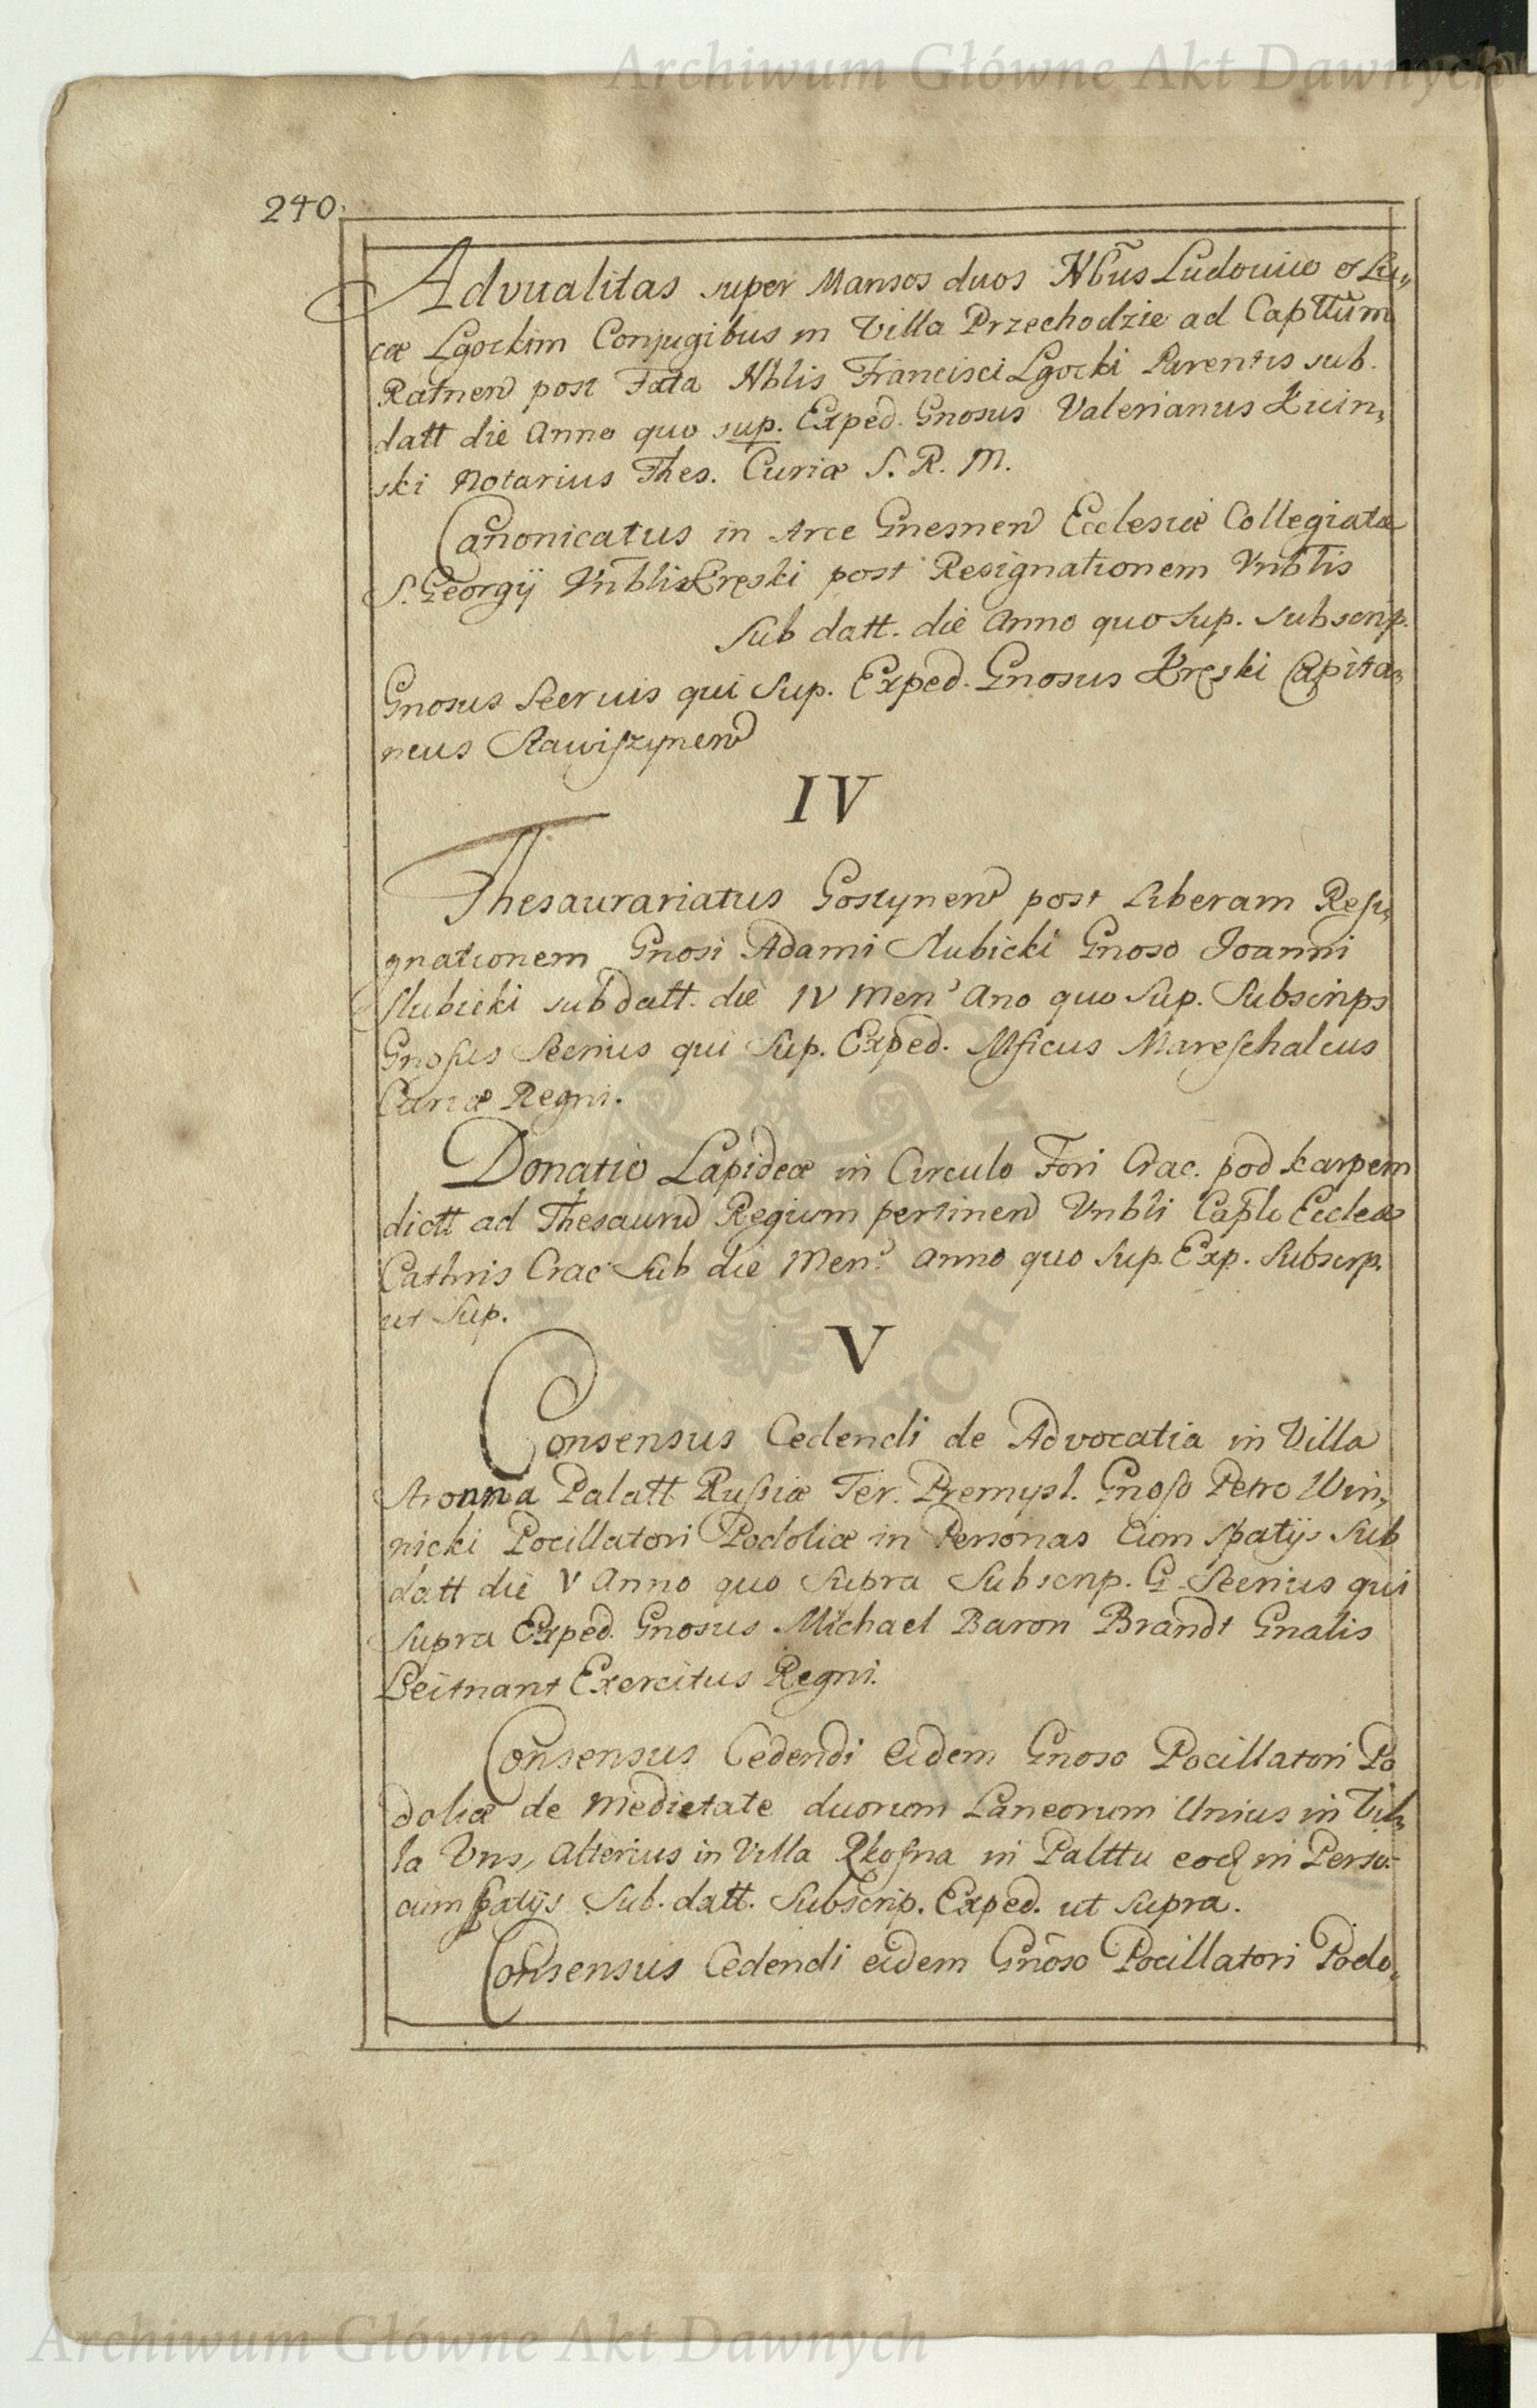 Archiwum Główne Akt Dawnych
240.
Advitalitas super Mansos duos Nbus Ludovico et Lu„
cæ Lgockim Conjugibus in Villa Przechodzie ad Capttum
Ratnen post Fata Nblis Francisci Lgocki Parentis sub.
datt die Anno quo sup. Exped. Gnosus Valerianus
ski Notarius Thes. Curiæ S. R. M.
Canonicatus in Arce Gnesnen Ecclesiæ Collegiatæ
S. Georgÿ Vnblis Kręski post Resignationem Vnblis
Sub datt. die Anno quo Sup. Subscrip.
Gnosus Secrius qui Sup. Exped. Gnosus Kręski Capita„
neus Stawiszynen
IV
Thesaurariatus Gostynen post Liberam Resi„
gnationem Gnosi Adami Slubicki Gnoso Joanni
Slubicki sub datt. die IV Men' Ano quo Sup. Subscrips
Gnosus Secrius qui Sup. Exped. Mficus Mareschalcus
Curiæ Regni.
Donatio Lapideæ in Circulo Fori Crac. pod karpem
dictt ad Thesaurum Regium pertinen Vnbli Caplo Eccleæ
Cathris Crac Sub die Men' Anno quo Sup. Exp. Subscrp.
ut Sup.
V
Consensus Cedendi de Advocatia in Villa
Palatt Russiæ Ter. Premysl. Gnoso Petro Win„
nicki Pocillatori Podoliæ in Personas Cum spatÿs Sub
datt die V Anno quo Supra Subscrip. G. Secrius qui
Supra Exped. Gnosus Michael Baron Brandt Gnalis
Leitnant Exercitus Regni.
Consensus Cedendi eidem Gnoso Pocillatori Po
doliæ de Medietate duorum Laneorum Unius in Vil„
la Alterius in Villa in Palttu eod in Perso:
cum spatÿs Sub. datt. Subscrip. Exped. ut supra.
Consensus Cedendi eidem Gnoso Pocillatori Podo„
Archiwum Główne Akt Dawnych